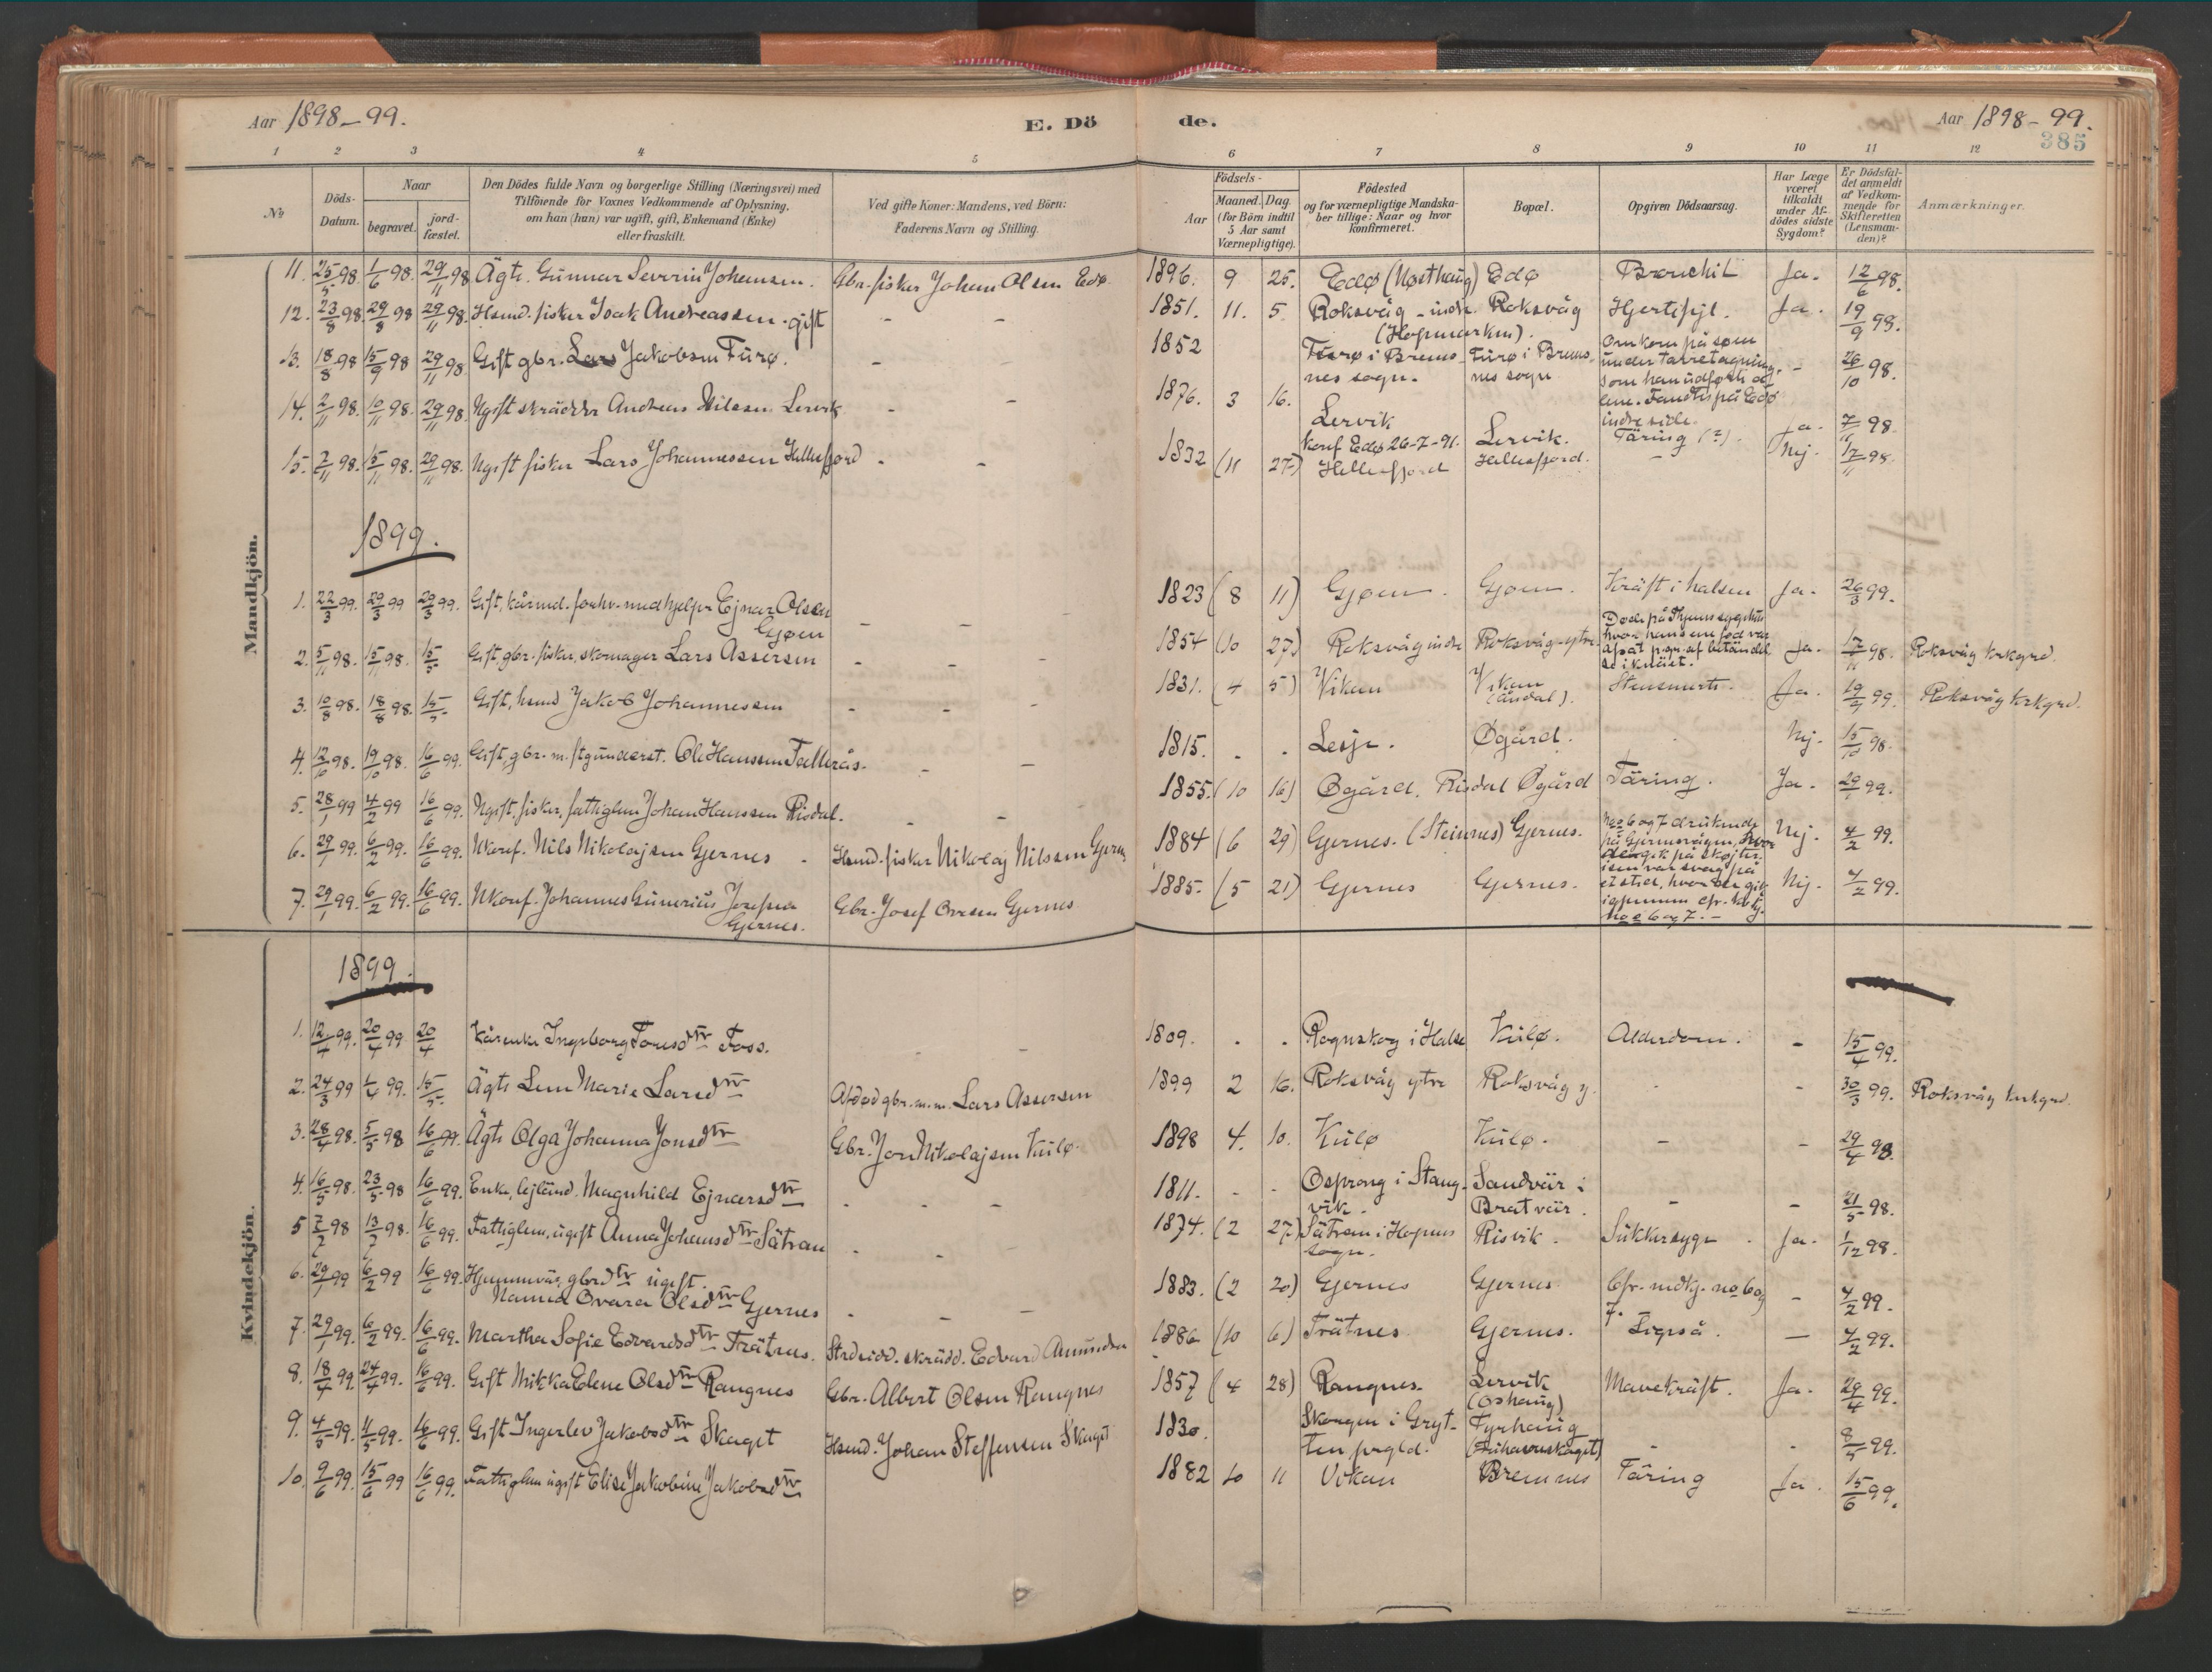 Aar 1898-99.
E. Dö
de.
Aar 1898-99.
385
1 2 3 4 5 6 7 8 9 10 11 12
№
Döds-Datum.
Naar
begravet.
jord-fæstet.
Den Dödes fulde Navn og borgerlige Stilling (Næringsvei) med
Tilföiende for Voxnes Vedkommende af Oplysning,
om han (hun) var ugift, gift, Enkemand (Enke)
eller fraskilt.
Ved gifte Koner: Mandens, ved Börn:
Faderens Navn og Stilling.
Födsels-
Aar
Maaned. Dag.
(for Börn indtil
5 Aar samt
Værnepligtige).
Födested
og for værnepligtige Mandska-
ber tillige: Naar og hvor
konfirmeret.
Bopæl.
Opgiven Dödsaarsag.
Har Læge
været
tilkaldt
under Af-
dödes sidste
Sygdom?
Er Dödsfal-
det anmeldt
af Vedkom-
mende for
Skifteretten
(Lensman-
den)?
Anmærkninger.
Mandkjön.
11. 25/5 98. 1/6 98. 29/11 98 Ägte. Gunnar Severin Johansen. Gbr. fisker Johan Olsen Edø. 1896. 9 25. Edø (Nøsthaug) Edø Bronchit Ja. 12/6 98.
12. 23/8 98. 29/8 98 29/11 98. Hsmd. fisker Isak Andreassen. gift - - 1851. 11. 5. Roksvåg - indre. (Hopmarken). Roksvåg Hjertefejl. Ja. 19/9 98.
13. 18/8 98 15/9 98 29/11 98 Gift gbr. Lars Jakobsen Furø. - - 1852 Furø i Brems-
nes sogn. Furø i Brems-
nes sogn Omkom på søen
under taretagning,
som han udførte a-
lene. Fandtes på Edø
indre side. - 26/10 98.
14. 2/11 98. 10/11 98. 29/11 98 Ugift skrädder Andreas Nilssen Lervik - - 1876. 3 16. Lervik
konf Edø 26-7-91. Lervik. Täring (?). Ja. 7/11 98.
15. 7/11 98. 15/11 98. 29/11 98. Ugift fisker Lars Johannessen Hellesfjord - - 1832 (11 27) Hellesfjord Hellesfjord. - Nej. 17/11 98.
1899.
1. 22/3 99. 29/3 99 29/3 99. Gift, kårmd. forhv. medhjelper Ejnar Olsen
Gjøen - - 1823 (8 11) Gjøen. Gjøen. Kräft i halsen Ja. 26/3 99.
2. 5/11 98. 15/11 98. 15/5 Gift, gbr. fisker, skomager Lars Assersen - - - 1854 (10 27) Roksvåg indre Roksvåg-ytre Døde på Thjems sygehus
hvor hans ene fod var
afsat p. gr. af betändel-
se i knäet. Ja. 17/11 98. Roksvåg krkgrd.
3. 10/8 98. 18/8 98. 15/5 Gift, hsmd Jakob Johannessen - - - 1831. (4 5) Viken Viken
(Äsdal). Stensmerte. Ja. 19/4 99. Roksvåg krkgrd.
4. 12/10 98. 19/10 98. 16/6 99. Gift, gbr. m. ftgunderst. Ole Hanssen Tallerås. - - 1815. - - Lesje. Øgård. Nej. 15/10 98.
5. 28/1 99 4/2 99 16/6 99. Ugift, fisker, fattiglem Johan Hanssen Risdal. - - 1855. (10 16) Øgård. Risdal Øgård Täring. Ja. 29/1 99.
6. 29/1 99. 6/2 99. 16/6 99. Ukonf. Nils Nikolajsen Gjernes - Hsmd. fisker Nikolaj Nilssen Gjernes 1884 (6 29) Gjernes. (Steinnes) Gjernes. No 6 og 7 druknede
på Gjernesvågen, hvor
de gik på skøjter,
isen var svag på
et sted, hvor der gik
igjennem cfr. kvkj.
no 6 og 7. - Nej. 4/2 99.
7. 29/1 99. 6/2 99. 16/6 99. Ukonf. Johannes Gunerius Josefsen
Gjernes. Gbr. Josef Oversen Gjernes 1885. (5 21) Gjernes Gjernes. Nej. 4/2 99.
Kvindekjön.
1899.
1. 12/4 99. 20/4 99 20/4 Kårenke Ingeborg Toresdtr Foss. - - 1809. - - Rognskog i Halse Kulø. Alderdom. - 15/4 99.
2. 24/3 99 1/4 99. 15/5 Ägte Lena Marie Larsdtr Afdød gbr. m.m. Lars Assersen 1899 2 16. Roksvåg ytre Roksvåg y. - - 30/3 99. Roksvåg krkgrd.
3. 28/4 98. 5/5 98 16/6 99. Ägte Olga Johanna Jonsdtr Gbr. Jon Nikolajsen Kulø. 1898 4. 10. Kulø Kulø. - - 29/4 98.
4. 16/5 98. 23/5 98 16/6 99. Enke, lejländ. Magnhild Ejnarsdtr - - - 1811. - - Osprong i Stang-
vik. Sandvär i
Bratvär. - - 21/5 98.
5 7/2 98 13/2 98. 16/6 99. Fattiglem, ugift Anna Johansdtr Sätran - - 1874. (2 27) Sätran i Hopens
sogn. Risvik. Sukkersyge. Ja. 1/12 98.
6. 29/1 99 6/2 99 16/6 99. Hjemmevär. gbrdtr ugift.
Hanna Ovara Olsdtr Gjernes - - 1883. (2 20) Gjernes Gjernes Cfr. mdkj. no 6 og
7. - 4/2 99.
7. 29/1 99. 6/2 99. 16/6 99. Martha Sofie Edvardsdtr Trätnes. Strdsidd. skrädd. Edvard Amundsen 1886 (10 6) Trätnes Gjernes. Ligeså. - 4/2 99.
8. 18/4 99. 24/4 99. 16/6 99. Gift Mikka Edene Olsdtr Rangnes Gbr. Albert Olsen Rangnes 1857 (4 28) Rangnes. Lervik
(Oshaug) Mavekräft. Ja. 29/4 99.
9. 4/5 99. 11/5 99. 16/6 99. Gift Ingerlev Jakobsdtr Skaget Hsmd. Johan Steffensen Skaget 1830. Skorgen i Gryt-
ten prgld. Tyrhaug
- - 8/5 99.
10. 9/6 99. 15/6 99 16/6 99. Fattiglem ugift Elise Jakobine Jakobsdtr 1882 10 11 Vikan Bremnes Täring Ja. 15/6 99.